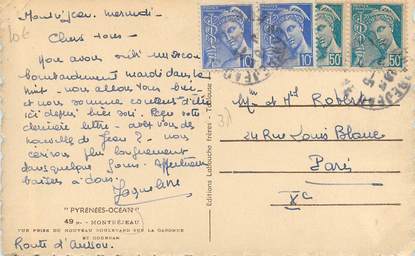 10€
Montréjeau mercredi -
Chers tous -
bombardement mardi dans la
nuit - nous allons tous bien
et nous sommes contents d'être
ici depuis hier soir. Reçu votre
dernière lettre - avez vous des
nouvelles de Jean ? - nous
plus longuement
dans quelques jours. Affectueux
baisers à tous.
Jacqueline
"PYRÉNÉES-OCÉAN"
49 MONTRÉJEAU
VUE PRISE DU NOUVEAU BOULEVARD SUR LA GARONNE
ET GOURDAN
Route d'Aussou.
Editions Labouche Frères - Toulouse
10c
10c
50c
50c
31
Mr et Mme Robert
24 Rue Louis Blanc
Paris
Xe